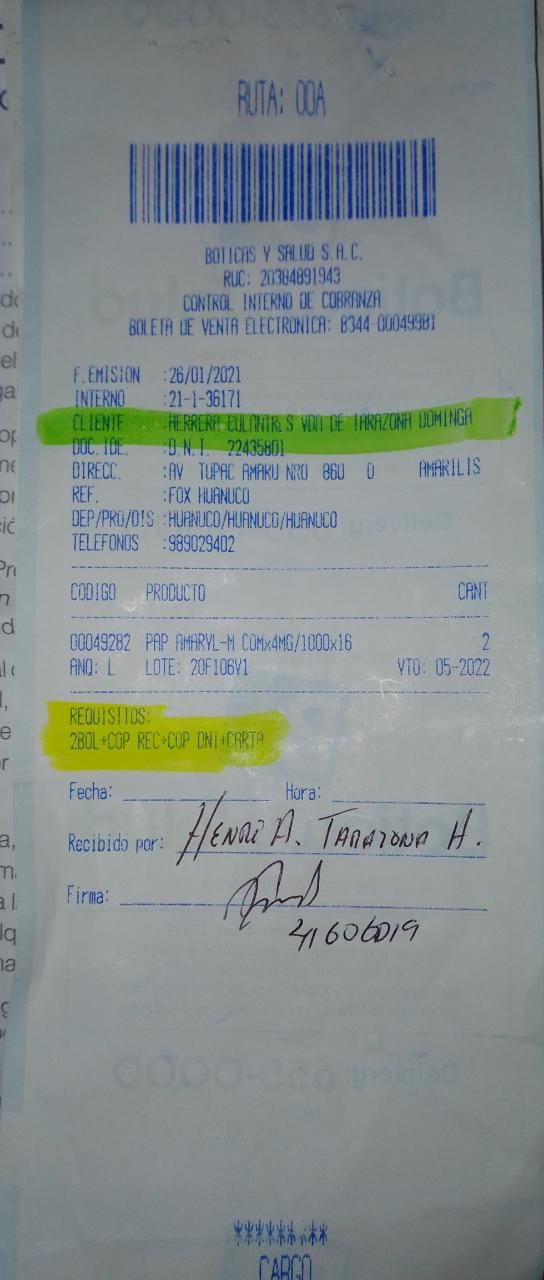 RUTA: 00A
BOTICAS Y SALUD S.A.C.
RUC: 20384891943
CONTROL INTERNO DE COBRANZA
BOLETA DE VENTA ELECTRONICA: B344-00049981
F.EMISION :26/01/2021
INTERNO :21-1-36171
CLIENTE :HERRERA VDA DE TARAZONA DOMINGA
DOC. IDE. :D.N.I. 22435801
DIRECC. :AV TUPAC AMARU NRO 860 0 AMARILIS
REF. :FOX HUANUCO
DEP/PRO/DIS :HUANUCO/HUANUCO/HUANUCO
TELEFONOS :989029402
CODIGO PRODUCTO CANT
00049282 PAP AMARYL-M COMx4MG/1000x16 2
ANO: L LOTE: 20F106V1 VTO: 05-2022
REQUISITOS:
2BOL+COP REC+COP DNI+CARTA
Fecha: Hora:
Recibido por: HENRI A. TARAZONA H.
Firma:
41606019
CARGO